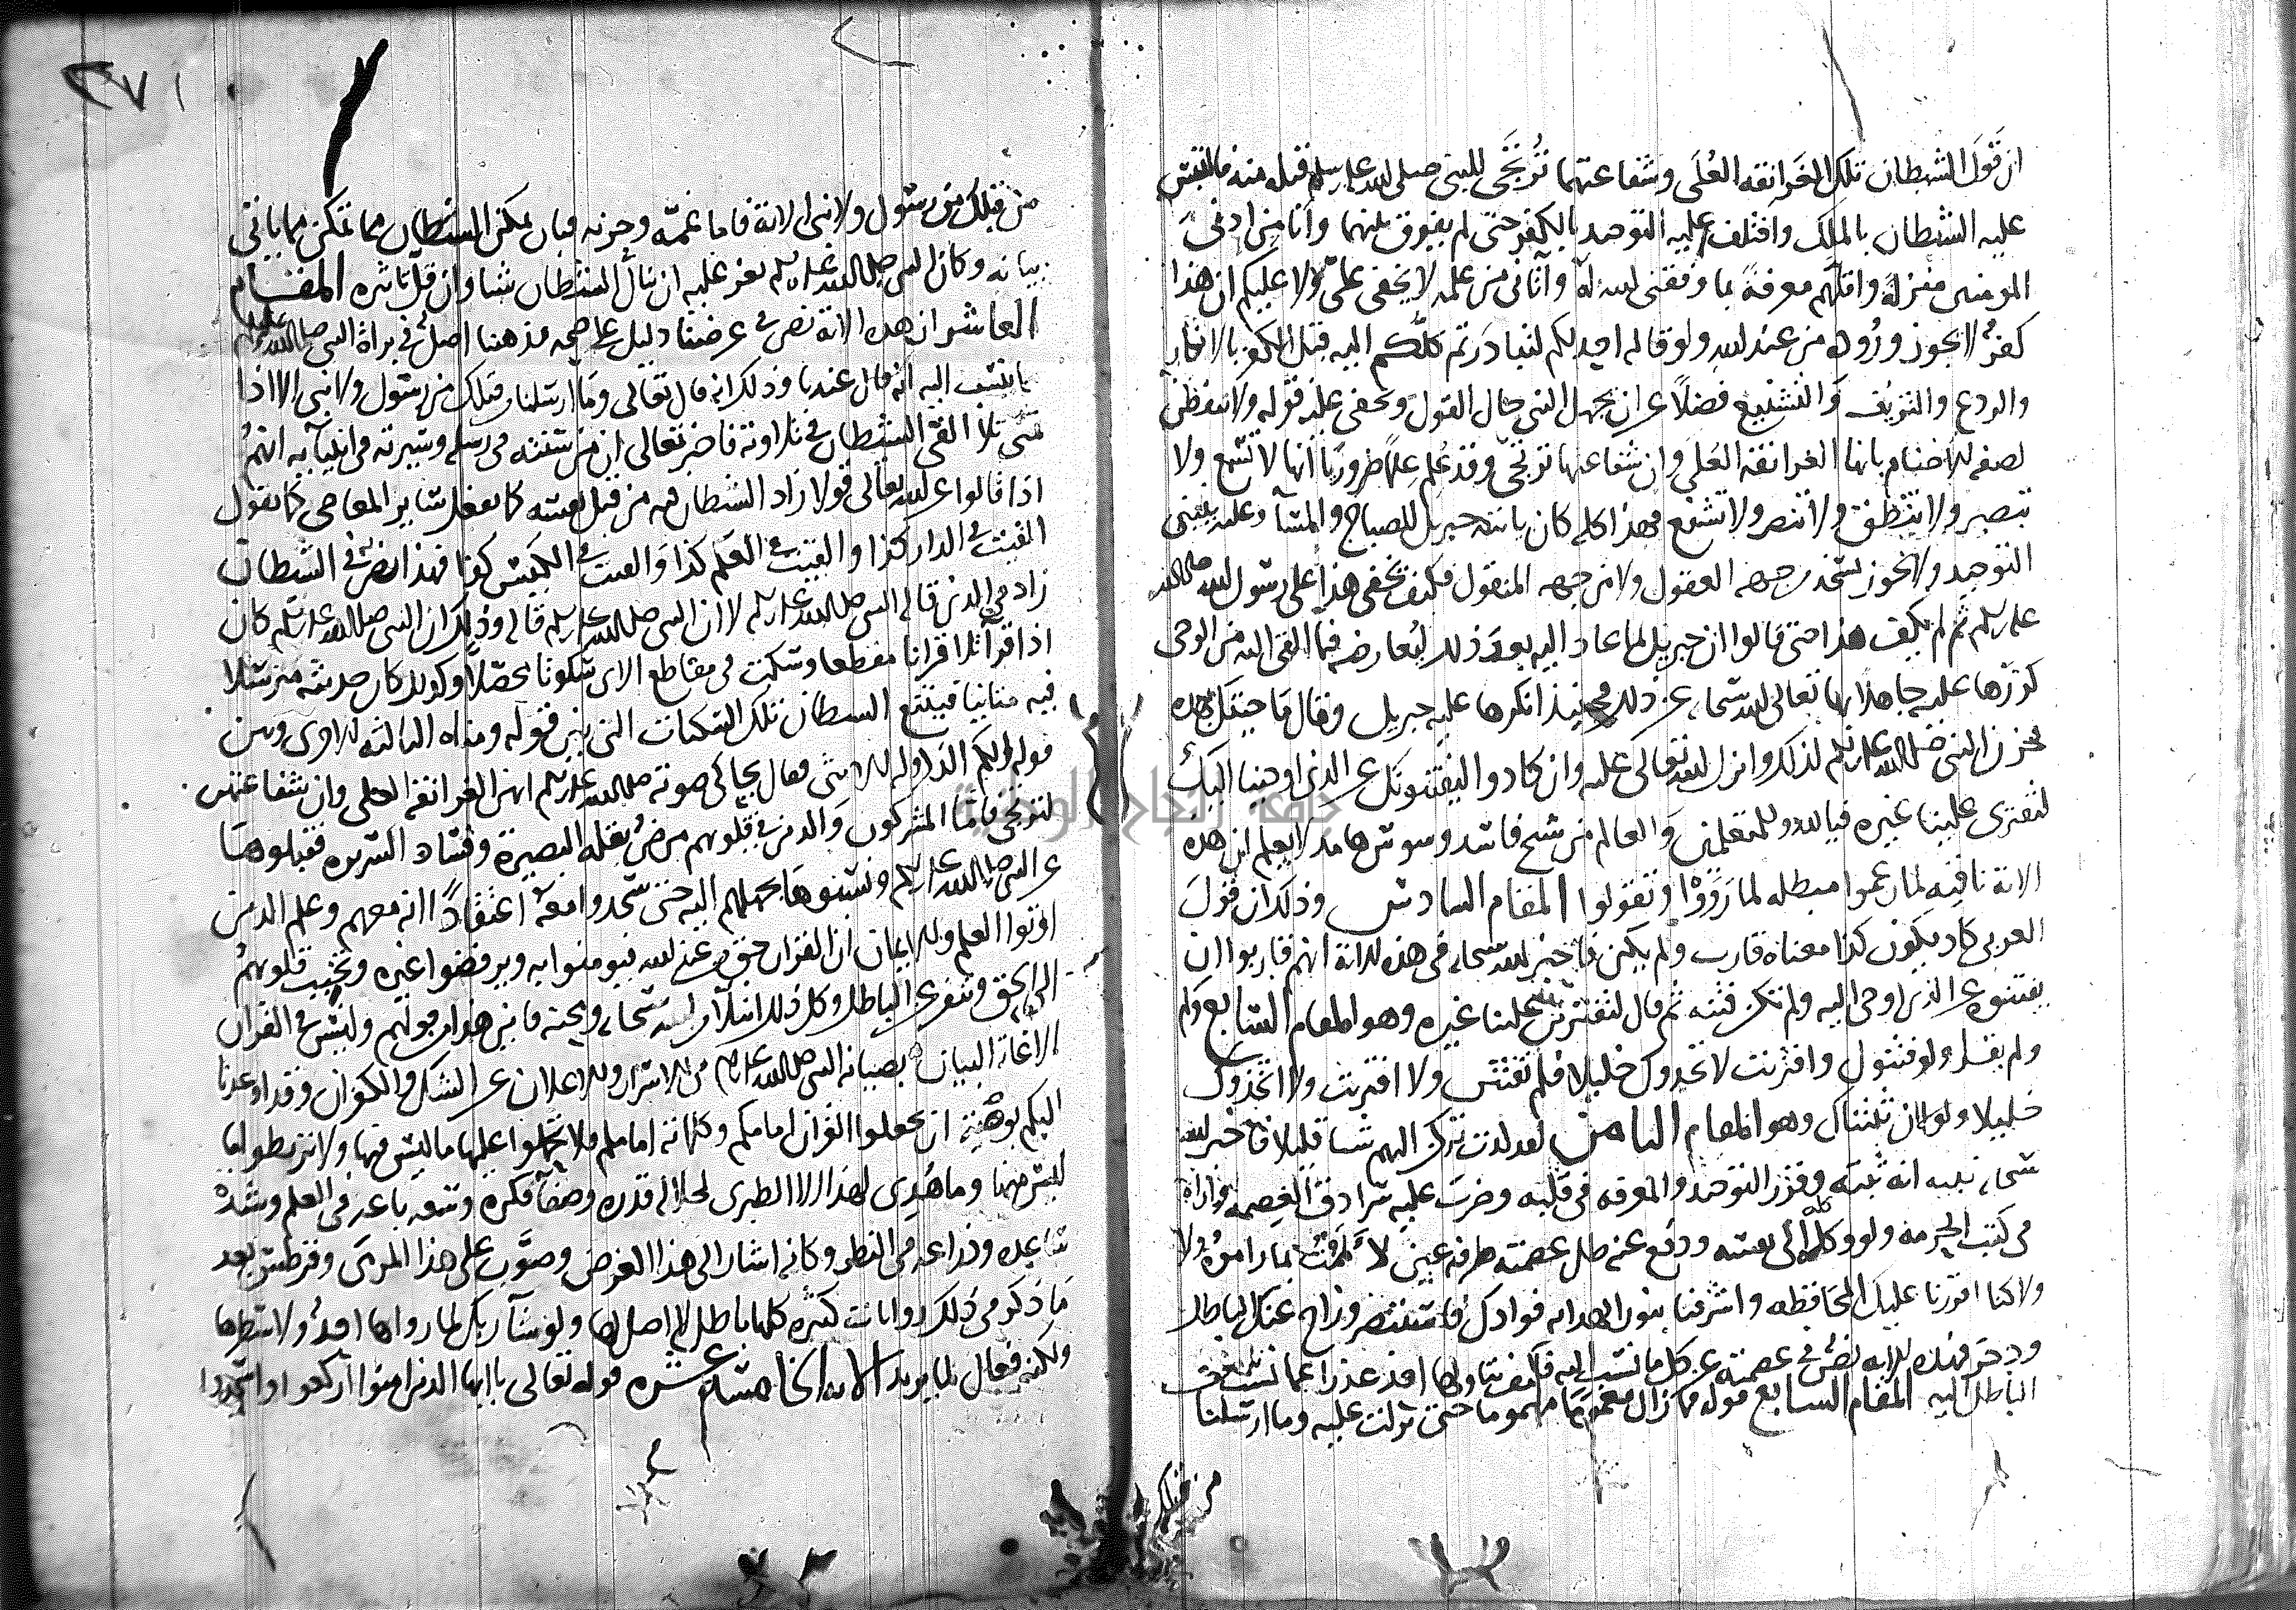 ان قول الشيطان تلك الغرانقه العلى وشفاعتها ترتجى للنبى صلى الله عليه وسلم قبله منه فالتبس
عليه الشيطان بالملك واختلف عليه التوحيد بالكفر حتى لم يفرق بينهما وأنا من ادنى
المومنين منزلة واقلهم معرفة بما وفقنى الله له وآتانى من علمه لا يخفى علىّ ولا عليكم ان هذا
كفر لا يجوز وروده من عند الله ولو قاله احد لكم لتبادرتم كلكم اليه قبل الفكر بالانكار
والردع والتزييف والتشنيع فضلا عن ان يجهل النبى حال القول ويخفى عليه قوله ولا يتفطن
لصفه للاصنام بانها الغرانقة العلى وان شفاعتها ترتجى وقد علم علما ضروريا أنها لا تسمع ولا
تبصر ولا تنطق ولا تنصر ولا تشفع بهذا كله كان ياتيه جبريل الصباح والمسآ وعليه ينبنى
التوحيد ولا يجوز نسخه من جهه العقول ولا من جهه المنقول فكيف يخفى هذا على رسول الله صلى الله
عليه وسلم ثم لم يكف هذا حتى قالوا ان جبريل لما عاد اليه بعد ذلك ليعارضه فيما القى اليه من الوحى
كررها عليه جاهلا بها تعالى الله سبحانه عن ذلك فحينئذ انكرها عليه جبريل وقال ما جئتك بهذه
فحزن النبى صلى الله عليه وسلم لذلك وانزل الله تعالى عليه وان كادوا ليفتنونك عن الذى اوحينا اليك
لتفترى علينا غيره فيالله وللمتعلمين والعالم من شيخ فاسد وسوس هامد لا يعلم ان هذه
الاية نافية لما زعموا مبطله لما رووا وتقولوا المقام السادس وذلك ان قول
العربى كاد يكون كذا معناه قارب ولم يكن فاخبر الله سبحانه فى هذه الاية انهم قاربوا ان
يفتنوه عن الذى اوحى اليه ولم تكن فتنه ثم قال لتفترى علينا غيره وهو المقام السابع ولم
ولم يفتر ولو فتنوك وافتريت لاتخذوك خليلا فلم تفتتن ولا افتريت ولا اتخذوك
خليلا ولولا ان ثبتناك وهو المقام الثامن لقد كدت تركن اليهم شيا قليلا فاخبر الله
سبحانه نبيه انه ثبته وقرر التوحيد والمعرفه فى قلبه وضرب عليه سرادق العصمه واواه
فى كنف الحرمه ولو وكله الى نفسه ورفع عنه ظل عصمته طرفه عين لالممت بما راموه ولا
ولكنا افرزنا عليك المحافظه واشرقنا بنور الهدايه فوادك فاستبصر وزاح عنك الباطل
ودحر فهذه الايه نص فى عصمته عن كل ما نسب اليه فكيف يتاولها احد عذرا عما نسب من
الباطل اليه المقام السابع قوله فما زال مغموما مهموما حتى نزلت عليه وما ارسلنا
من قبلك
٢٧١
من قبلك من رسول ولا نبى الاية فاما غمه وحزنه فبان يمكن الشيطان مما تمكن مما ياتى
بيانه وكان النبى صلى الله عليه وسلم يعز عليه ان ينال الشيطان شيا وان قل تاثيره المقام
العاشر ان هذه الاية نص فى عرضنا دليل على صحه مذهبنا اصل فى براة النبى صلى الله عليه وسلم
ما ينسب اليه انه قال عندنا وذلك انه قال تعالى وما ارسلنا من قبلك من رسول ولا نبى الا اذا
تمنى تلا القى الشيطان فى تلاوته فاخبر تعالى ان من سنته فى رسله وسيرته فى انبيآيه انهم
اذا قالوا عن الله تعالى قولا زاد الشيطان فيه من قبل نفسه كما يفعل ساير المعاصى كما يقول
القيت فى الدار كذا والقيت فى العكم كذا والقيت فى الكيس كذا فهذا نص فى الشيطان
زاد فى الذى قاله النبى صلى الله عليه وسلم لا ان النبى صلى الله عليه وسلم قاله وذلك ان النبى صلى الله عليه وسلم كان
اذا قرأ تلا قرانا مقطعا وسكت فى مقاطع الاى سكوتا محصلا وكذلك كان حديثه مترسلا
فيه متانيا فيتتبع الشيطان تلك السكتات التى بين قوله ومناه الثالثه الاخرى وبين
قوله الكم الذكر وله الانثى فقال يحاكى صوته صلى الله عليه وسلم انهن الغرانقة العلى وان شفاعتهن
لترتجى فاما المشركون والذين فى قلوبهم مرض لقله البصيرة وفساد السريره فقبلوها
عن النبى صلى الله عليه وسلم ونسبوها بجهلهم اليه حتى سجدوا معه اعتقادا انه معهم وعلم الذين
اوتوا العلم والايمان ان القران حق من عند الله فيومنوا به ويرفضوا غيره وتخبت قلوبهم
الى الحق وتنفر عن الباطل وكل ذلك ابتلآ من الله سبحانه ومحنه فاين هذا من قولهم وليس فى القران
الا غاية البيان بصيانه النبى صلى الله عليه وسلم فى الاسرار والاعلان عن الشك والكفران وقد اوعدنا
اليكم توصية ان تجعلوا القران امامكم وكلماته امامكم فلا تحملوا عليها ما ليس فيها ولا تربطوا بها
ليس منها وما هدى لهذا الا الطبرى لجلاله قدره وصفآ فكره وسعه باعه فى العلم وشدة
ساعده وذراعه فى النظر وكانه اشار الى هذا الغرض وصوب على هذا المرمى وقرطس بعد
ما ذكر فى ذلك روايات كثيره كلها باطله لا اصل لها ولو شآ ربك لما رواها احد ولا سطرها
ولكنه فعال لما يريد الاية الخامسة عشره قوله تعالى ياايها الذين امنوا اركعوا واسجدوا
جامعة النجاح الوطنية